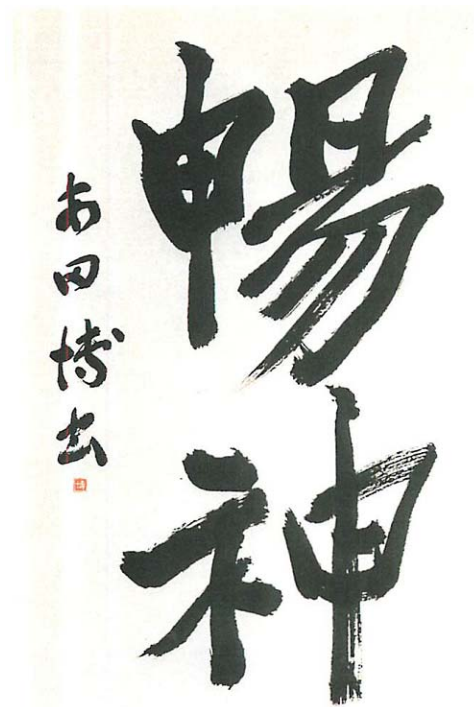 暢神
田博書